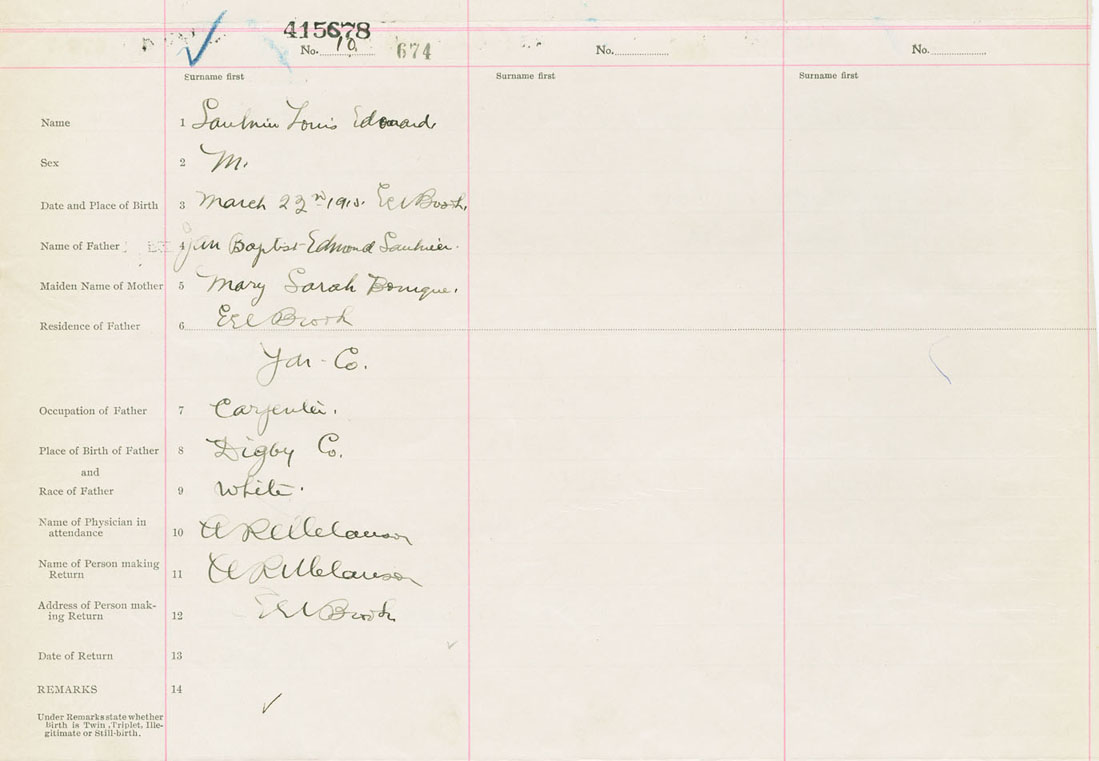 415678
No. 10. 674 No. No.
Surname first Surname first Surname first
Name 1 Saulnier Louis Edouard
Sex 2 M.
Date and Place of Birth 3 March 22nd 1910. Eel Brook,
Name of Father 4 Jean Baptist Edmond Saulnier.
Maiden Name of Mother 5 Mary Sarah
Residence of Father 6 Eel Brook
Yar Co.
Occupation of Father 7 Carpenter.
Place of Birth of Father 8 Digby Co.
and
Race of Father 9 White.
Name of Physician in
attendance 10 A R Melanson
Name of Person making
Return 11 A R Melanson
Address of Person mak-
ing Return 12 Eel Brook
Date of Return 13
REMARKS 14
Under Remarks state whether
birth is Twin, Triplet, Ille-
gitimate or Still-birth.